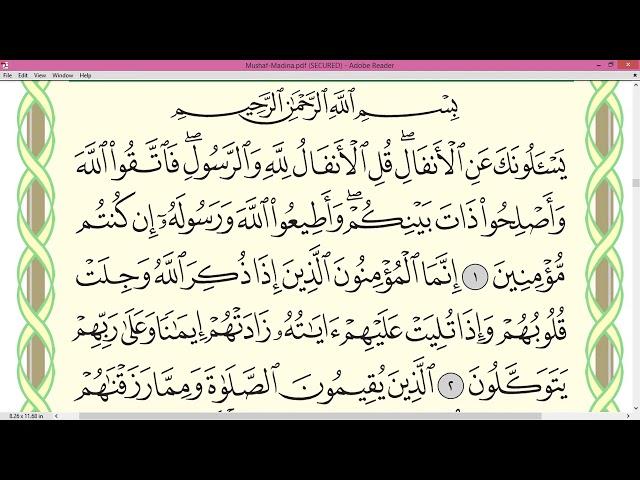 Mushaf-Madina.pdf (SECURED) - Adobe Reader
File Edit View Window Help
بِسْمِ ٱللَّهِ ٱلرَّحْمَٰنِ ٱلرَّحِيمِ
يَسْـَٔلُونَكَ عَنِ ٱلْأَنفَالِ ۖ قُلِ ٱلْأَنفَالُ لِلَّهِ وَٱلرَّسُولِ ۖ فَٱتَّقُوا۟ ٱللَّهَ
وَأَصْلِحُوا۟ ذَاتَ بَيْنِكُمْ ۖ وَأَطِيعُوا۟ ٱللَّهَ وَرَسُولَهُۥٓ إِن كُنتُم
مُّؤْمِنِينَ ١ إِنَّمَا ٱلْمُؤْمِنُونَ ٱلَّذِينَ إِذَا ذُكِرَ ٱللَّهُ وَجِلَتْ
قُلُوبُهُمْ وَإِذَا تُلِيَتْ عَلَيْهِمْ ءَايَٰتُهُۥ زَادَتْهُمْ إِيمَٰنًا وَعَلَىٰ رَبِّهِمْ
يَتَوَكَّلُونَ ٢ ٱلَّذِينَ يُقِيمُونَ ٱلصَّلَوٰةَ وَمِمَّا رَزَقْنَٰهُمْ
8.26 x 11.68 in